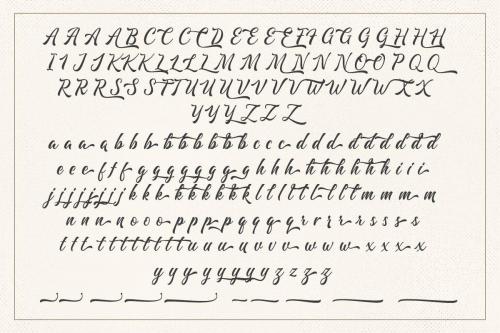 A A A A B C C C D E E E E F F G G G G H H H
I I J J K K K L L L L M M M N N N N O O P Q Q
R R R S S S T T U U U V V V V W W W W X X
Y Y Y Z Z Z
a a a a b b b b b b b b b b c c c d d d d d d d d d
e e e f f f g g g g g g g g h h h h h h h h h h i i i
j j j j j j j j j k k k k k k k k k l l l l l l l l l m m m m
n n n n o o o p p p p p q q q q q r r r r s s s s
t t t t t t t t t t t u u u u v v v w w w x x x x
y y y y y y y y z z z z